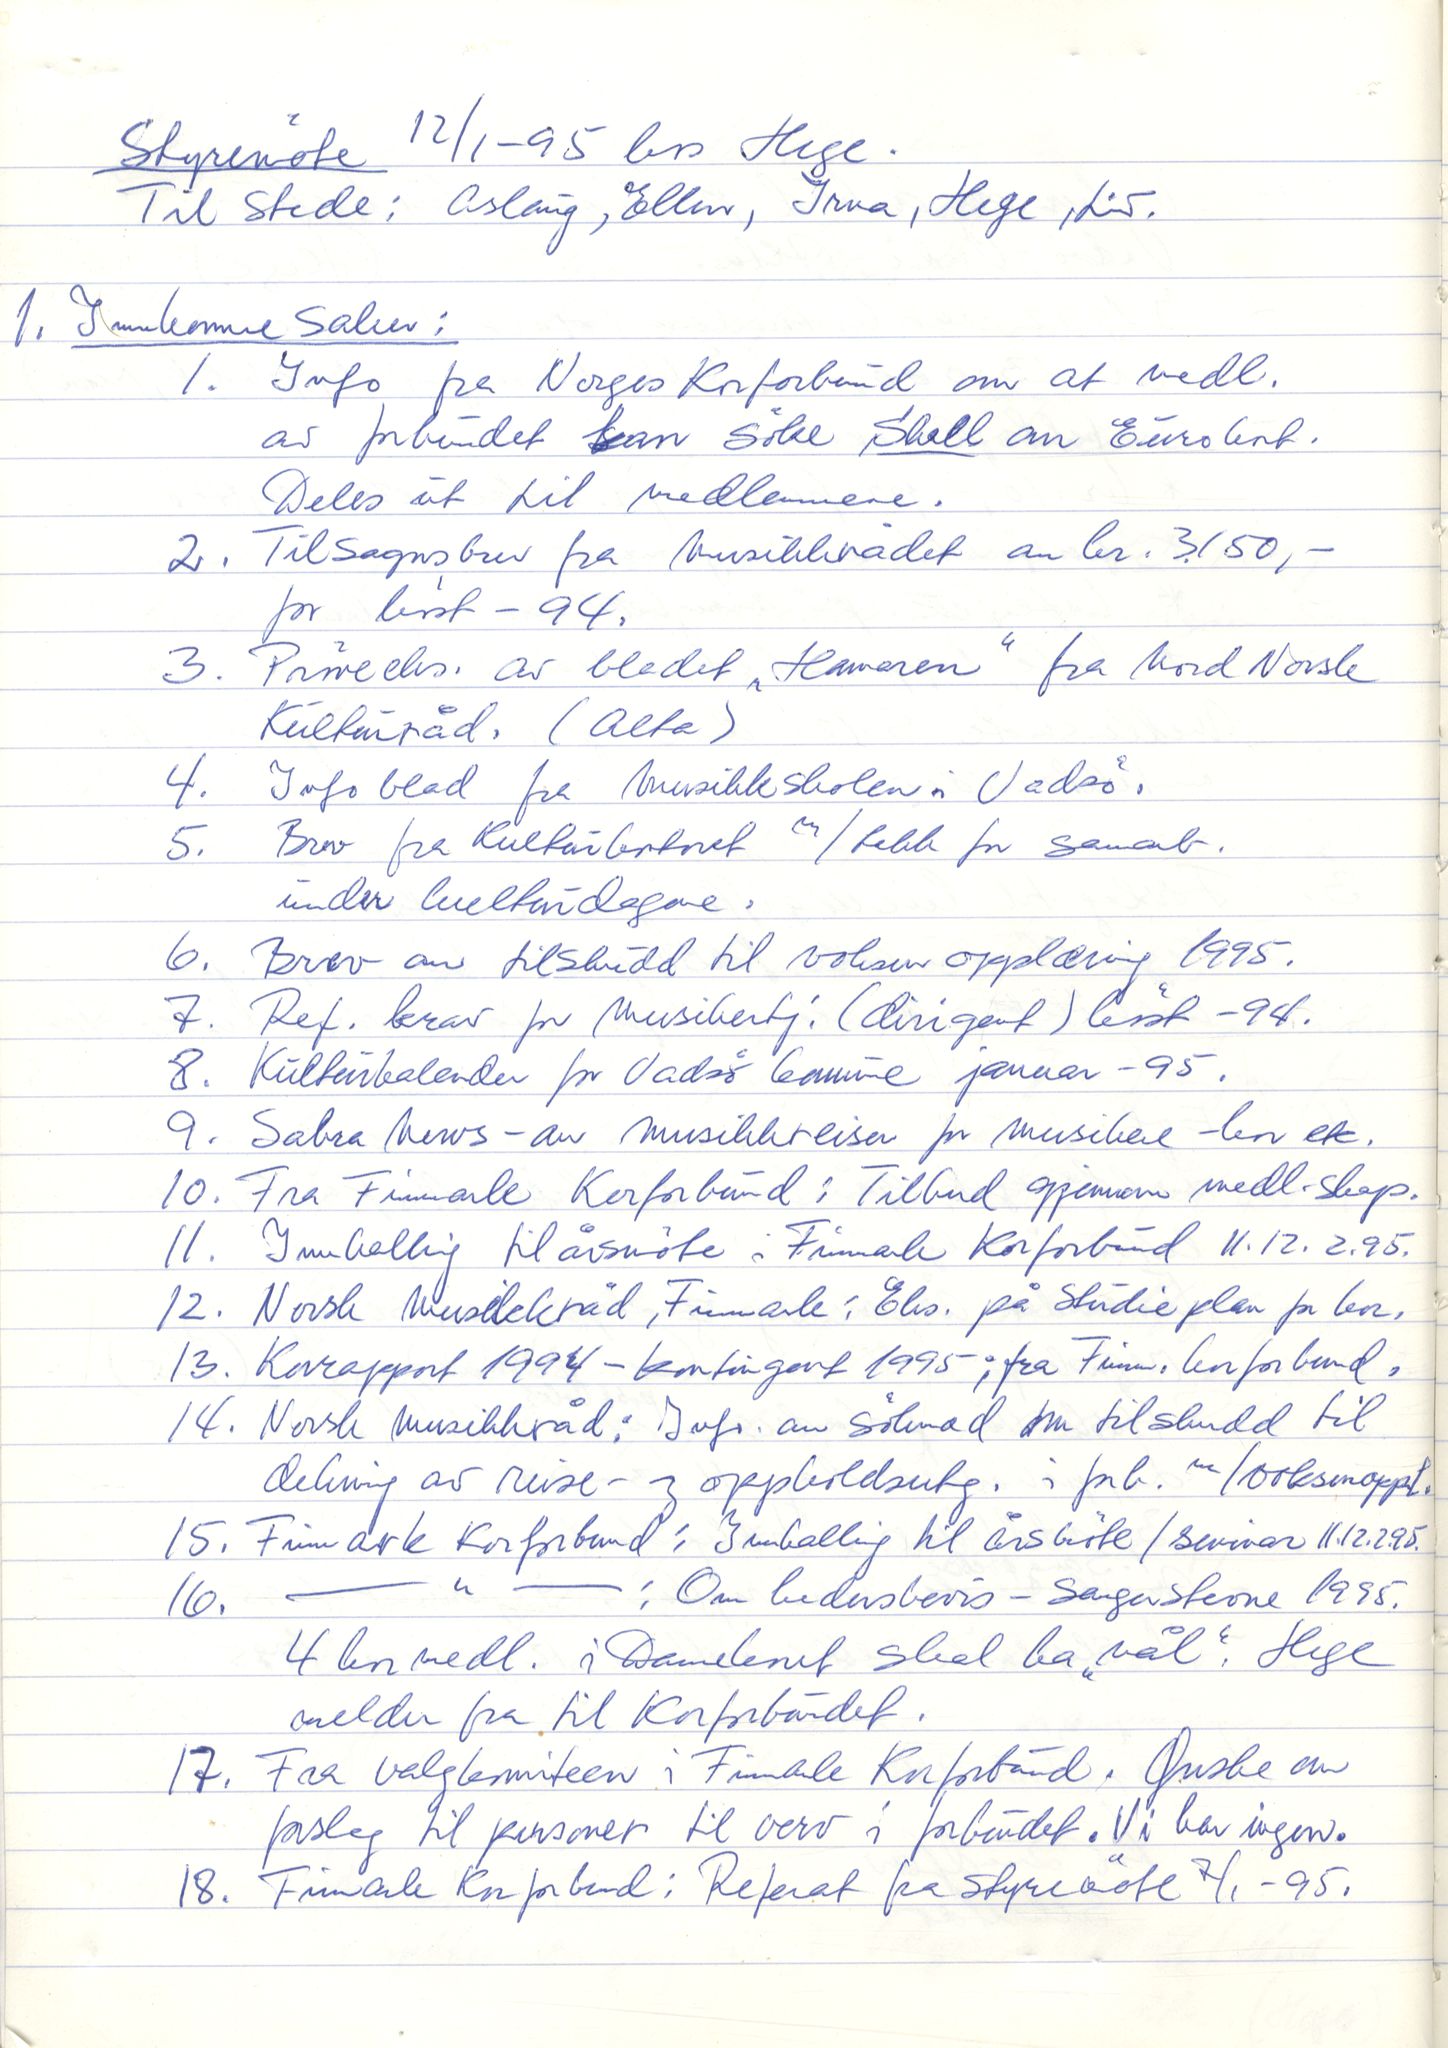 Styremöte 12/1-95 hos Hege.
Til stede: Aslaug, Ellen, Irna, Hege, Liv.
1. Innkomne saker:
1. Info fra Norges Korforbund om at medl.
av forbundet kan söke Shell om Eurokort.
Deles ut til medlemmene.
2. Tilsagnsbrev fra Musikkrådet om kr. 3.150,-
for höst -94.
3. Pröveeks. av bladet „Hameren“ fra Nord Norsk
Kulturråd. (Alta)
4. Infoblad fra Musikkskolen i Vadsö.
5. Brev fra Kulturkontoret m/takk for samarb.
under kulturdagene.
6. Brev om tilskudd til voksenopplæring 1995.
7. Ref. krav for Musikertj. (dirigent) höst -94.
8. Kulturkalender for Vadsö kommune januar -95.
9. Sabra News - om musikkreiser for musikere -kor etc.
10. Fra Finnmark Korforbund: Tilbud gjennom medl.skap.
11. Innkalling til årsmöte i Finnmark Korforbund 11.12.2.95.
12. Norsk Musikkråd, Finnmark: Eks. på studieplan for kor.
13. Korrapport 1994 - kontingent 1995; fra Finnm. korforbund.
14. Norsk Musikkråd: Info. om söknad om tilskudd til
dekning av reise- og oppholdsutg. i forb. m/voksenoppl.
15. Finnmark Korforbund: Innkalling til årsmöte/seminar 11.12.2.95.
16. — " — : Om hedersbevis - Sangerstevne 1995.
4 kormedl. i Damekoret skal ha „nål“. Hege
melder fra til Korforbundet.
17. Fra valgkomiteen i Finnmark Korforbund. Ønske om
forslag til personer til verv i forbundet. Vi har ingen.
18. Finnmark Korforbund: Referat fra styremöte 7/1-95.